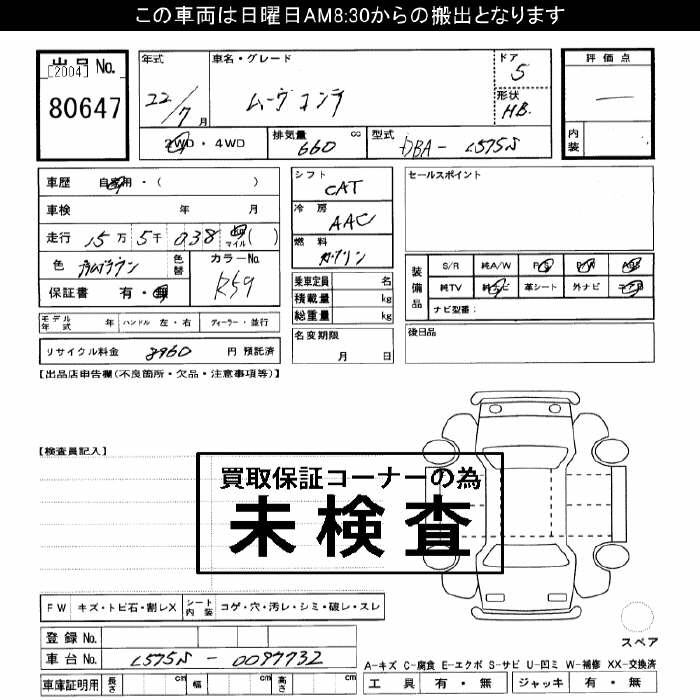 この車両は日曜日AM8:30からの搬出となります
出品 No.
[2004]
80647
年式
22/7 月
車名・グレード
ムーヴ コンテ
ドア
5
形状
H.B.
評価点
内装
2WD・4WD
排気量 660 cc
型式 DBA- L575S
車歴 自家用・( )
車検 年 月
走行 15万 5千 038 マイル ( )
色
色替
カラーNo
R59
保証書 有・無
シフト
CAT
冷房
AAC
燃料
ガソリン
乗車定員 名
積載量 kg
総重量 kg
名変期限
月 日
セールスポイント
装備品
S/R 純A/W P/S P/W A/B
純TV 純ナビ 革シート 外ナビ
ナビ型番:
後日品
モデル年式 年 ハンドル 左・右 ディーラー・並行
リサイクル料金 8960 円 預託済
【出品店申告欄(不良箇所・欠品・注意事項等)】
【検査員記入】
買取保証コーナーの為
未検査
FW キズ・トビ石・割レX シート内装 コゲ・穴・汚レ・シミ・破レ・スレ
登録No.
車台No. L575S - 0097732
車庫証明用 長さ cm 幅 cm 高さ cm
スペア
A-キズ C-腐食 E-エクボ S-サビ U-凹ミ W-補修 XX-交換済
工具 有・無 ジャッキ 有・無